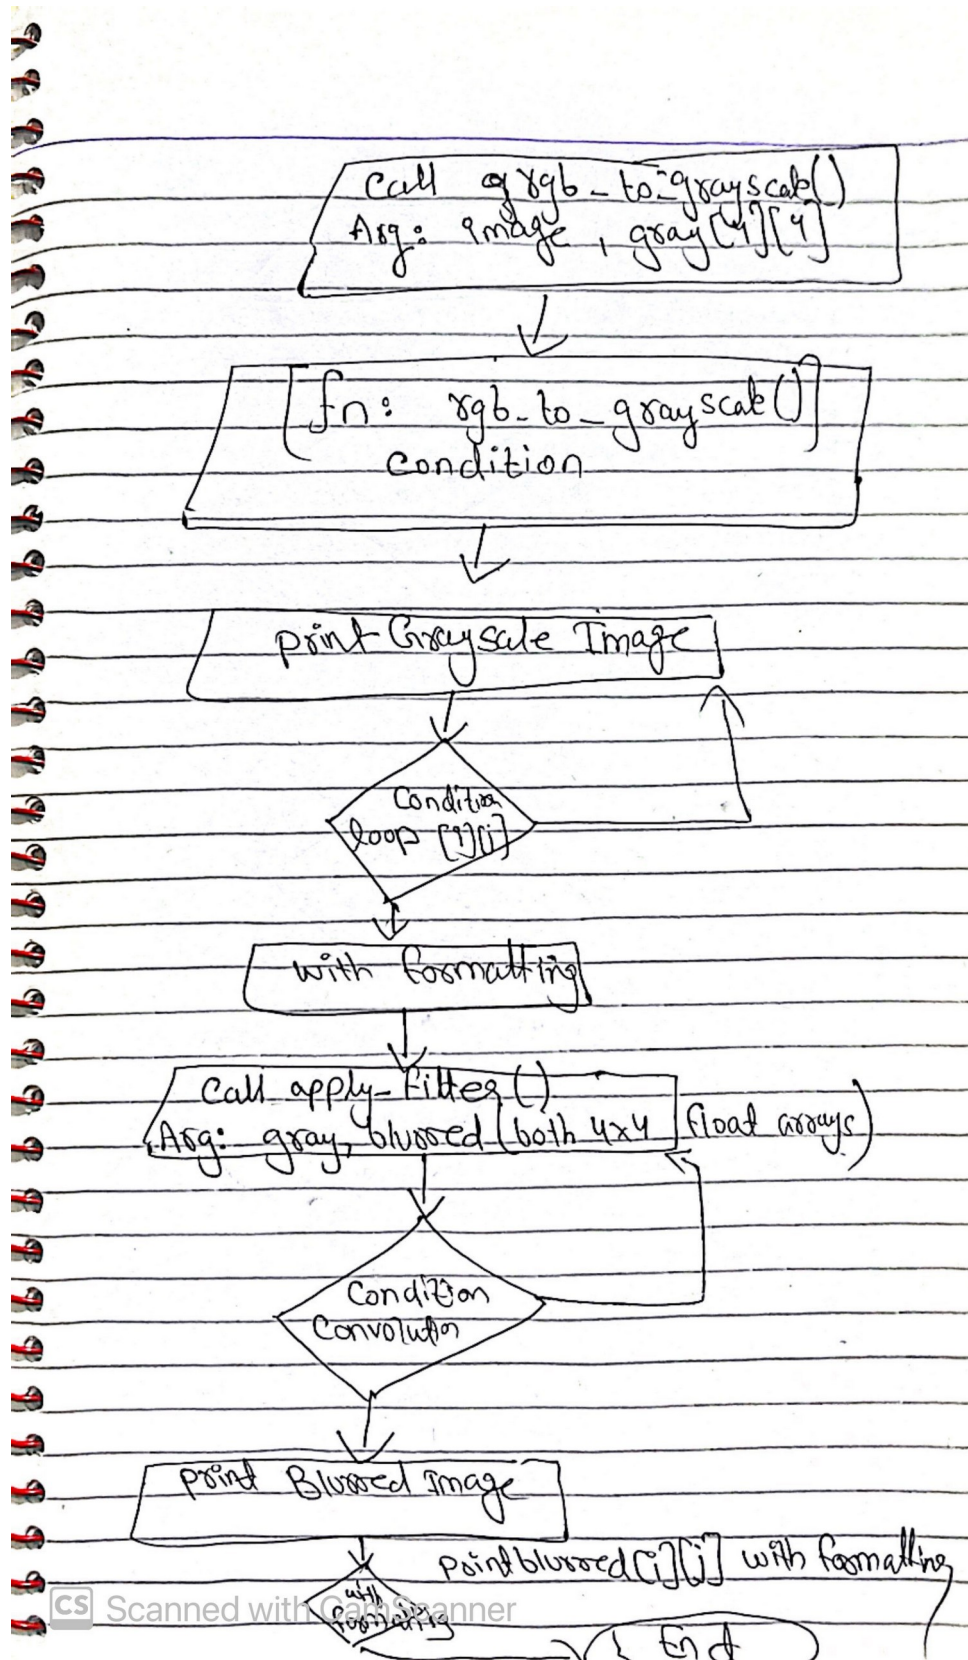 Call rgb_to_grayscale()
Arg: image, gray[4][4]
fn: rgb_to_grayscale()
Condition
print Graysale Image
Condition
loop [i][j]
with formatting
Call apply_filter()
Arg: gray, blurred (both 4x4 float arrays)
Condition
Convolution
print Blurred Image
print blurred[i][j] with formatting
with
formatting
End
CS Scanned with CamScanner